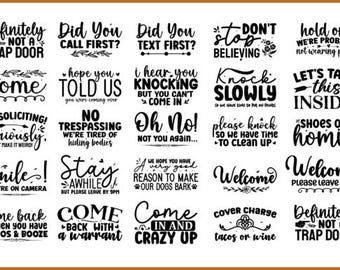 Definitely
NOT A
TRAP DOOR
Did You
CALL FIRST?
Did You
TEXT FIRST?
DON'T
stop
BELIEVING
hold on
WE'RE PROBABLY
not wearing
come
hope you
TOLD US
you were coming over
I hear you
KNOCKING
BUT YOU CAN'T
COME IN
Knock
SLOWLY
LET'S TAKE
this
INSIDE
SOLICITING!
Seriously
MAKE IT WEIRD!
NO
TRESPASSING
WE'RE TIRED OF
hiding bodies
Oh No!
NOT YOU AGAIN...
please knock
SO WE HAVE TIME
TO CLEAN UP
SHOES OFF
homie
Smile!
YOU'RE ON CAMERA
Stay
AWHILE
BUT PLEASE LEAVE BY 9PM
WE HOPE YOU HAVE
Very good
REASON TO MAKE
OUR DOGS BARK
Welcome
Welcome
PLEASE LEAVE
Come back
WHEN YOU HAVE
TACOS & BOOZE
COME
BACK WITH
a warrant
Come
IN AND
CRAZY UP
COVER CHARGE
tacos or wine
Definitely
NOT A
TRAP DOOR